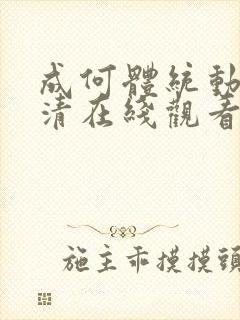 成何體統動
清在綫觀看
施主乖摸摸頭